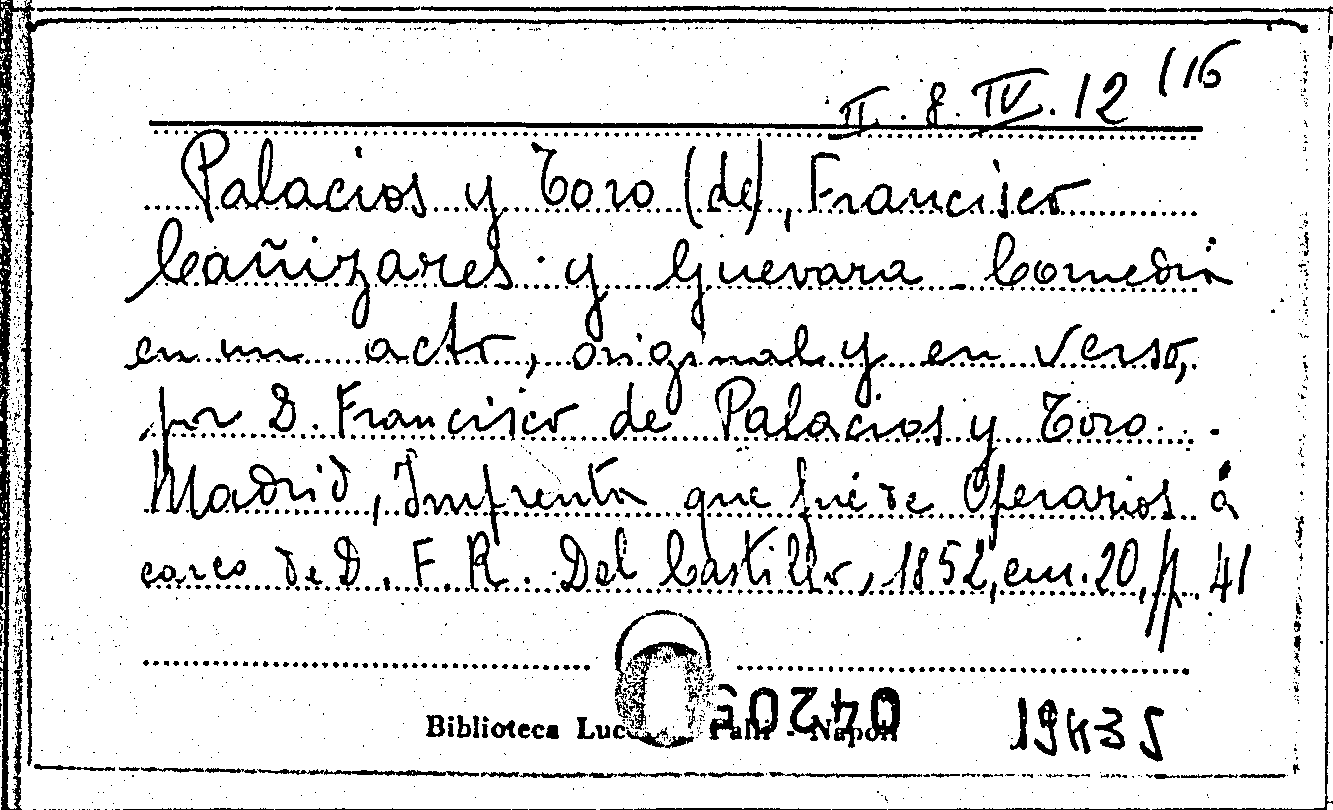 II. 8. IV. 12 (16
Palacios y Toro (de), Francisco
Cañizares y Guevara - Comedia
en un acto, original y en verso,
por D. Francisco de Palacios y Toro.
Madrid, Imprenta que fué de Operarios á
carco de D. F. R. Del Castillo, 1852, cm. 20, pp. 41
Biblioteca Napoli
19435